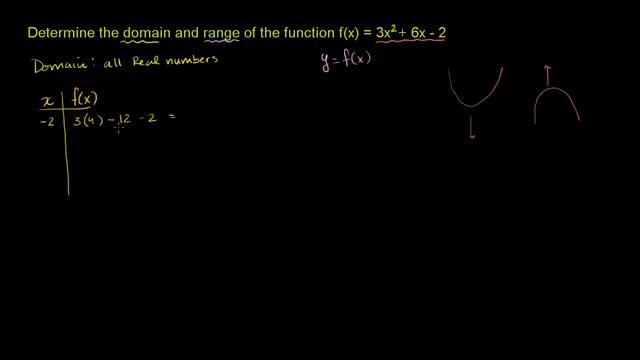 Determine the domain and range of the function f(x) = 3x² + 6x - 2
Domain: all Real numbers
y = f(x)
x f(x)
-2 3(4) - 12 - 2 =